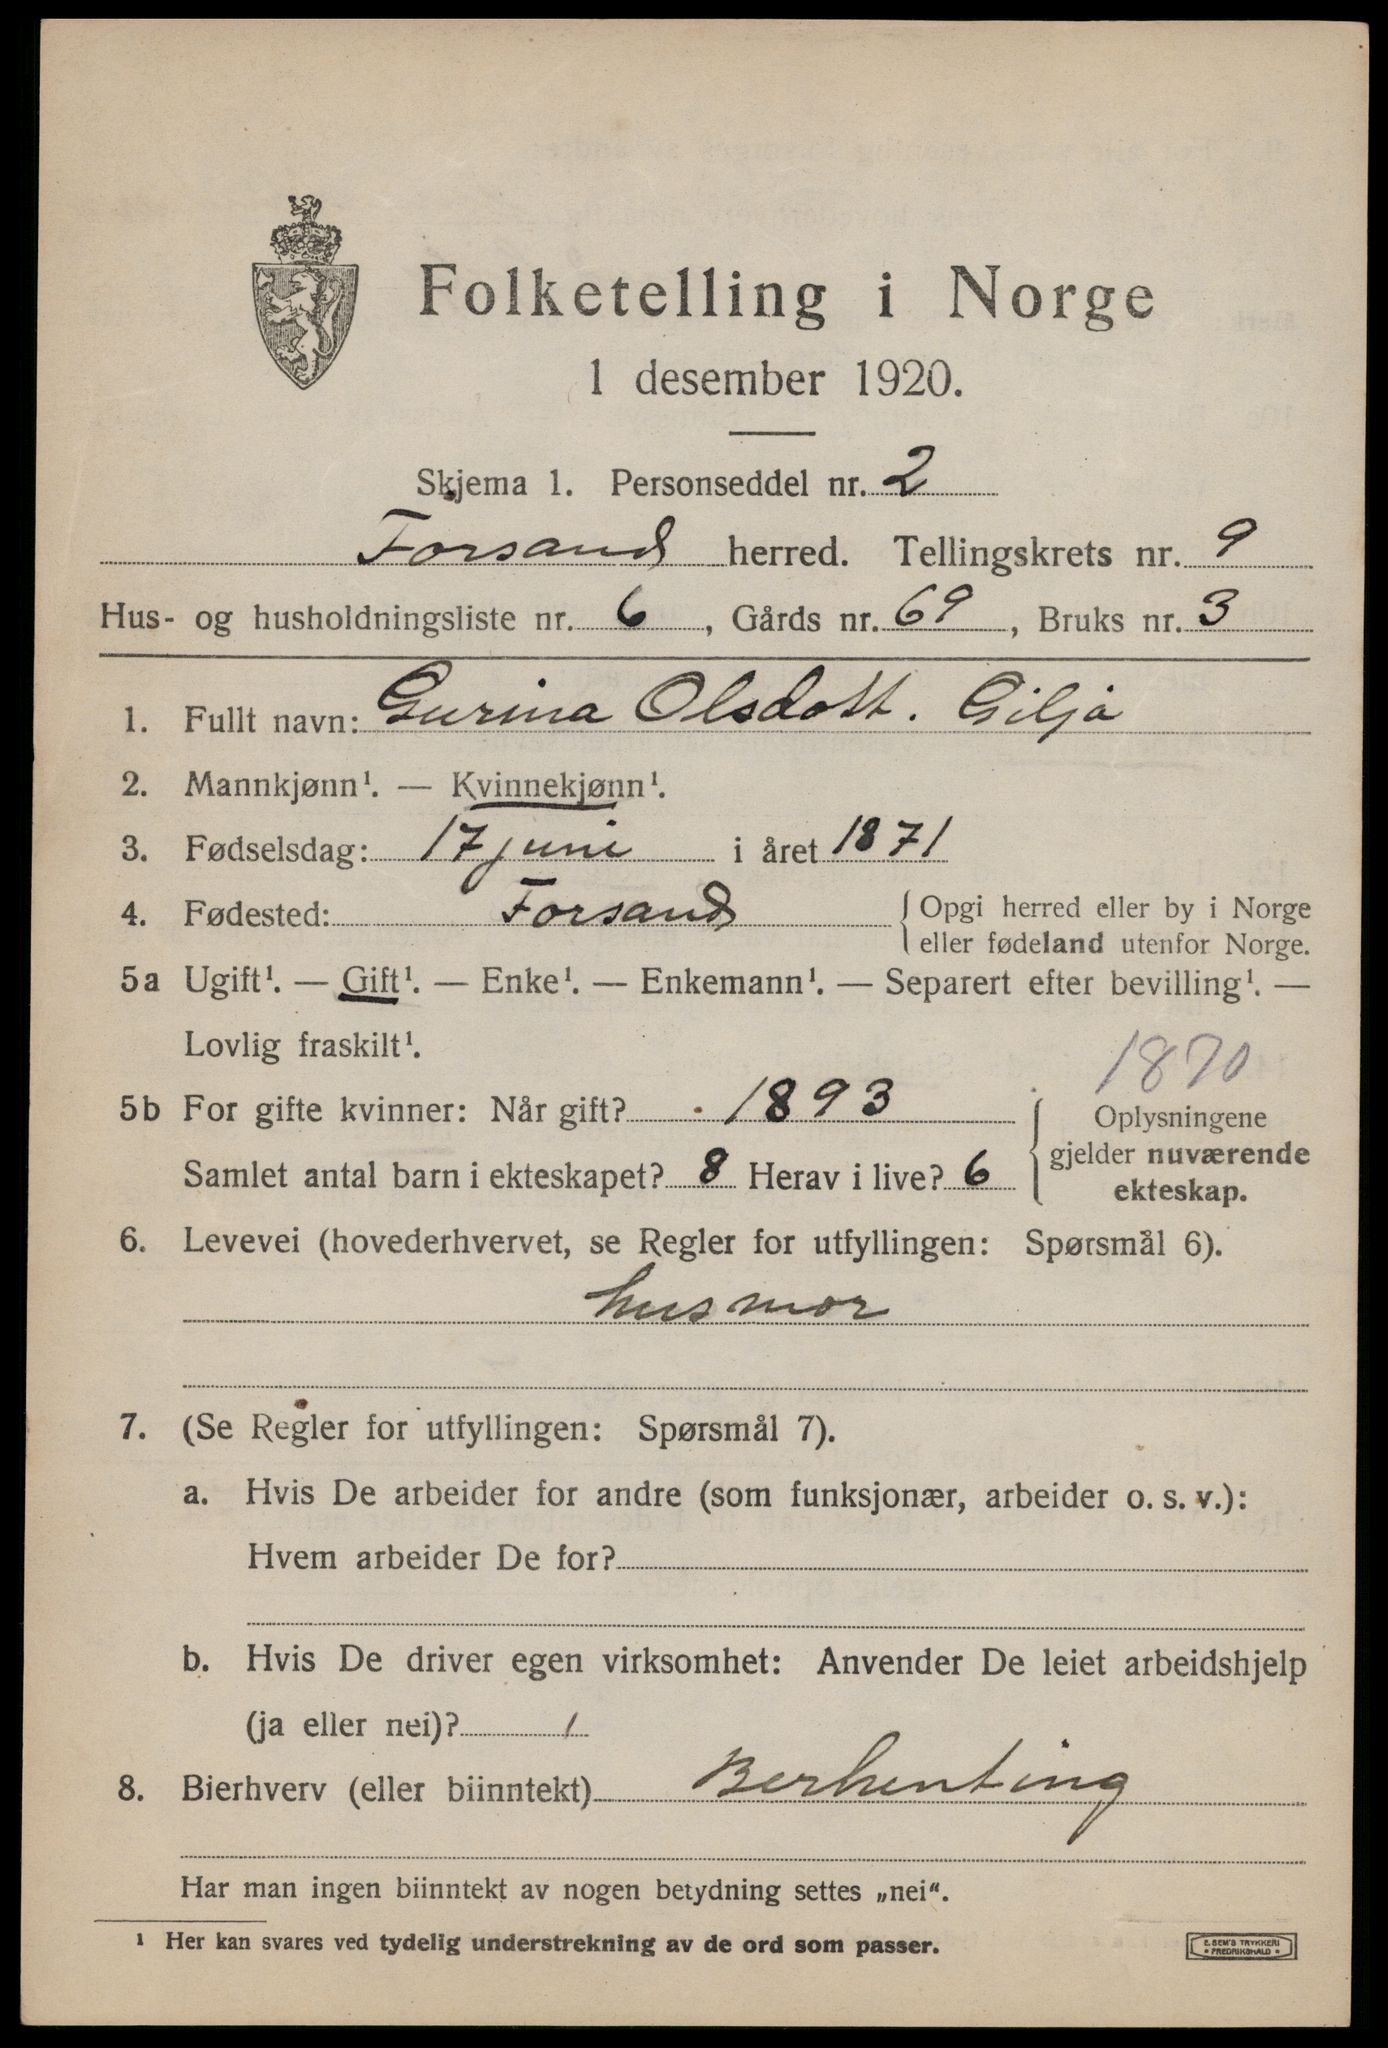 Folketelling i Norge
1 desember 1920.
Skjema 1. Personseddel nr. 2
Forsand herred. Tellingskrets nr. 9
Hus- og husholdningsliste nr. 6, Gårds nr. 69, Bruks nr. 3
1. Fullt navn: Gurina Olsdott. Gilja
2. Mannkjønn¹. — Kvinnekjønn¹.
3. Fødselsdag: 17 juni i året 1871
4. Fødested: Forsand { Opgi herred eller by i Norge
eller fødeland utenfor Norge.
5a Ugift¹. — Gift¹. — Enke¹. — Enkemann¹. — Separert efter bevilling¹. —
Lovlig fraskilt¹.
1870
5b For gifte kvinner: Når gift? 1893
Samlet antal barn i ekteskapet? 8 Herav i live? 6
{ Oplysningene
gjelder nuværende
ekteskap.
6. Levevei (hovederhvervet, se Regler for utfyllingen: Spørsmål 6).
husmor
7. (Se Regler for utfyllingen: Spørsmål 7).
a. Hvis De arbeider for andre (som funksjonær, arbeider o. s. v.):
Hvem arbeider De for?
b. Hvis De driver egen virksomhet: Anvender De leiet arbeidshjelp
(ja eller nei)? /
8. Bierhverv (eller biinntekt)
Har man ingen biinntekt av nogen betydning settes „nei“.
¹ Her kan svares ved tydelig understrekning av de ord som passer.
E. SEM'S TRYKKERI
• FREDRIKSHALD •